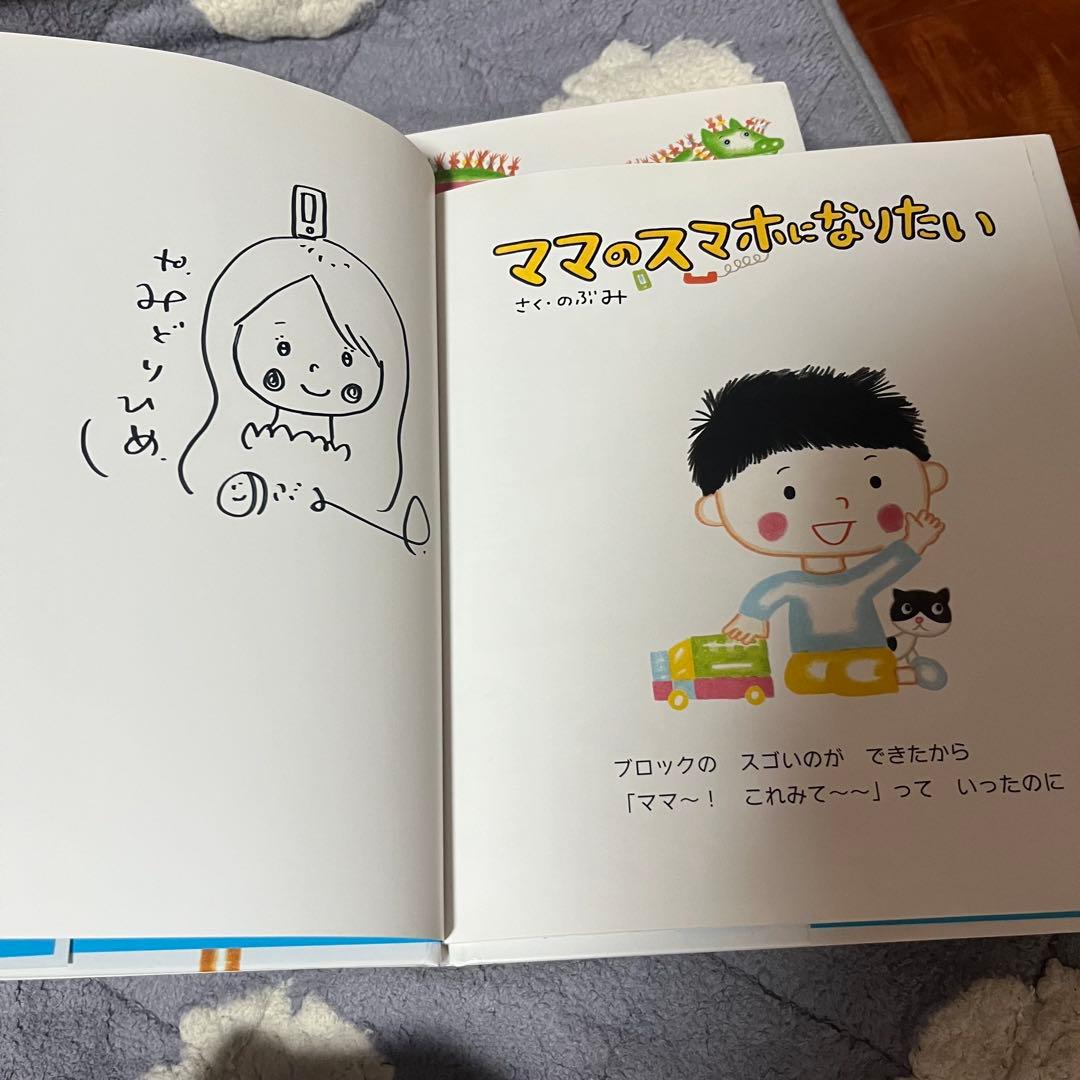 やみどりひめ
のぶみ
ママのスマホになりたい
さく・のぶみ
ブロックの スゴいのが できたから
「ママ～！ これみて～～」って いったのに